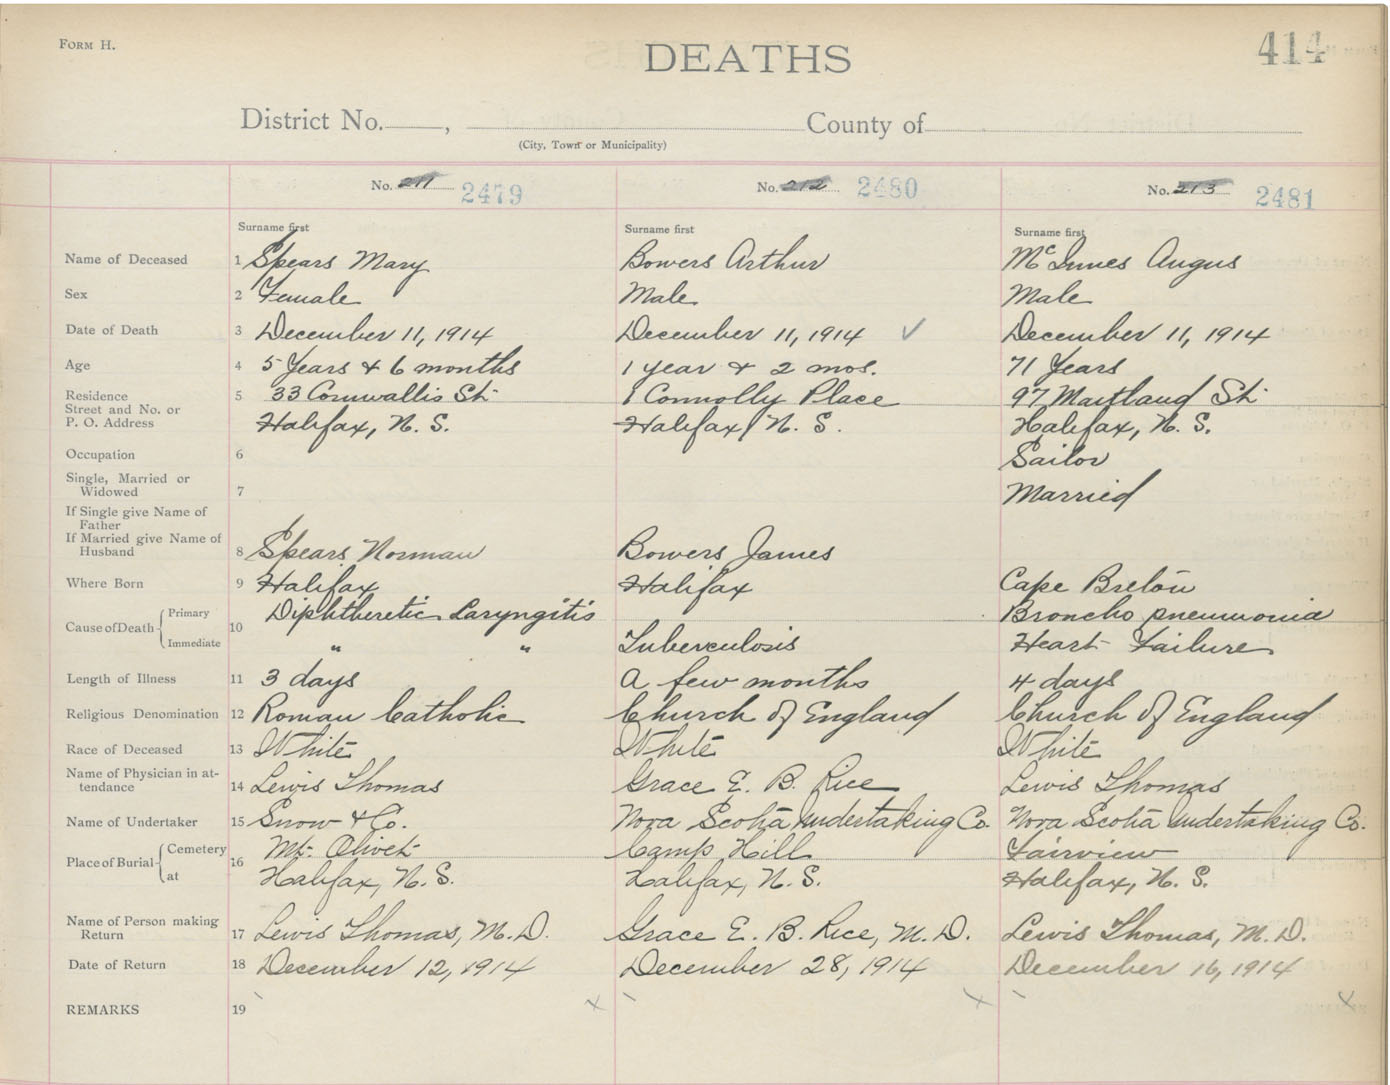 FORM H.
DEATHS
414
District No. , County of
(City, Town or Municipality)
No. 211 2479
No. 212 2480
No. 213 2481
Surname first
Surname first
Surname first
Name of Deceased 1 Spears Mary Bowers Arthur McInnes Angus
Sex 2 Female Male Male
Date of Death 3 December 11, 1914 December 11, 1914 ✓ December 11, 1914
Age 4 5 Years & 6 months 1 year & 2 mos. 71 Years
Residence 5 33 Cornwallis St. 1 Connolly Place 97 Maitland St.
Street and No. or
P. O. Address Halifax, N. S. Halifax, N. S. Halifax, N. S.
Occupation 6 Sailor
Single, Married or
Widowed 7 Married
If Single give Name of
Father
If Married give Name of
Husband 8 Spears Norman Bowers James
Where Born 9 Halifax Halifax Cape Breton
Cause of Death Primary 10 Diphtheretic Laryngitis Broncho pneumonia
Immediate " " Tuberculosis Heart Failure
Length of Illness 11 3 days A few months 4 days
Religious Denomination 12 Roman Catholic Church of England Church of England
Race of Deceased 13 White White White
Name of Physician in at-
tendance 14 Lewis Thomas Grace E. B. Rice Lewis Thomas
Name of Undertaker 15 Snow & Co. Nova Scotia Undertaking Co. Nova Scotia Undertaking Co.
Place of Burial Cemetery 16 Mt. Olivet Camp Hill Fairview
at Halifax, N. S. Halifax, N. S. Halifax, N. S.
Name of Person making
Return 17 Lewis Thomas, M. D. Grace E. B. Rice, M. D. Lewis Thomas, M. D.
Date of Return 18 December 12, 1914 December 28, 1914 December 16, 1914
REMARKS 19 x x x